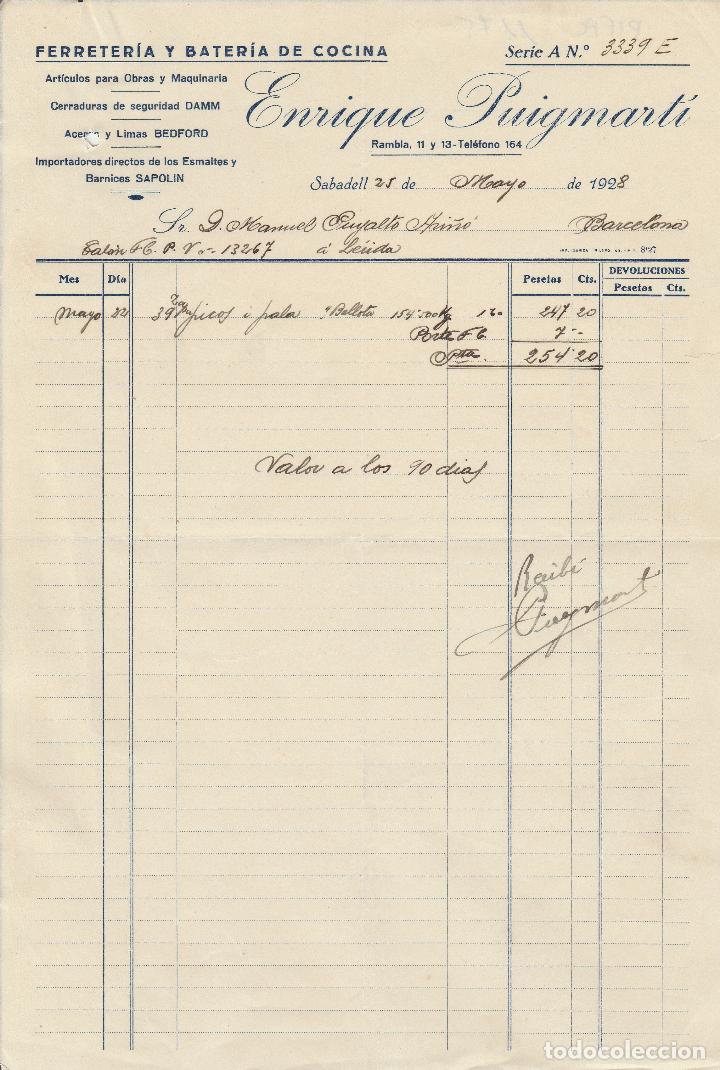 FERRETERÍA Y BATERÍA DE COCINA
Serie A N.º 3339 E
Artículos para Obras y Maquinaria
Cerraduras de seguridad DAMM
Aceros y Limas BEDFORD
Importadores directos de los Esmaltes y
Barnices SAPOLIN
Enrique Puigmartí
Rambla, 11 y 13-Teléfono 164
Sabadell 25 de Mayo de 1928
Sr. D. Manuel Barcelona
Talón F.C. P.V. 13267 á Lérida
Mes Día Pesetas Cts. DEVOLUCIONES
Pesetas Cts.
Mayo 22 39 picos i pala "Bellota 154'500 Kg 160 247 20
Porte F.C. 7 --
Ptas. 254'20
Valor a los 90 dias
Recibí
Puigmartí
todocoleccion.net